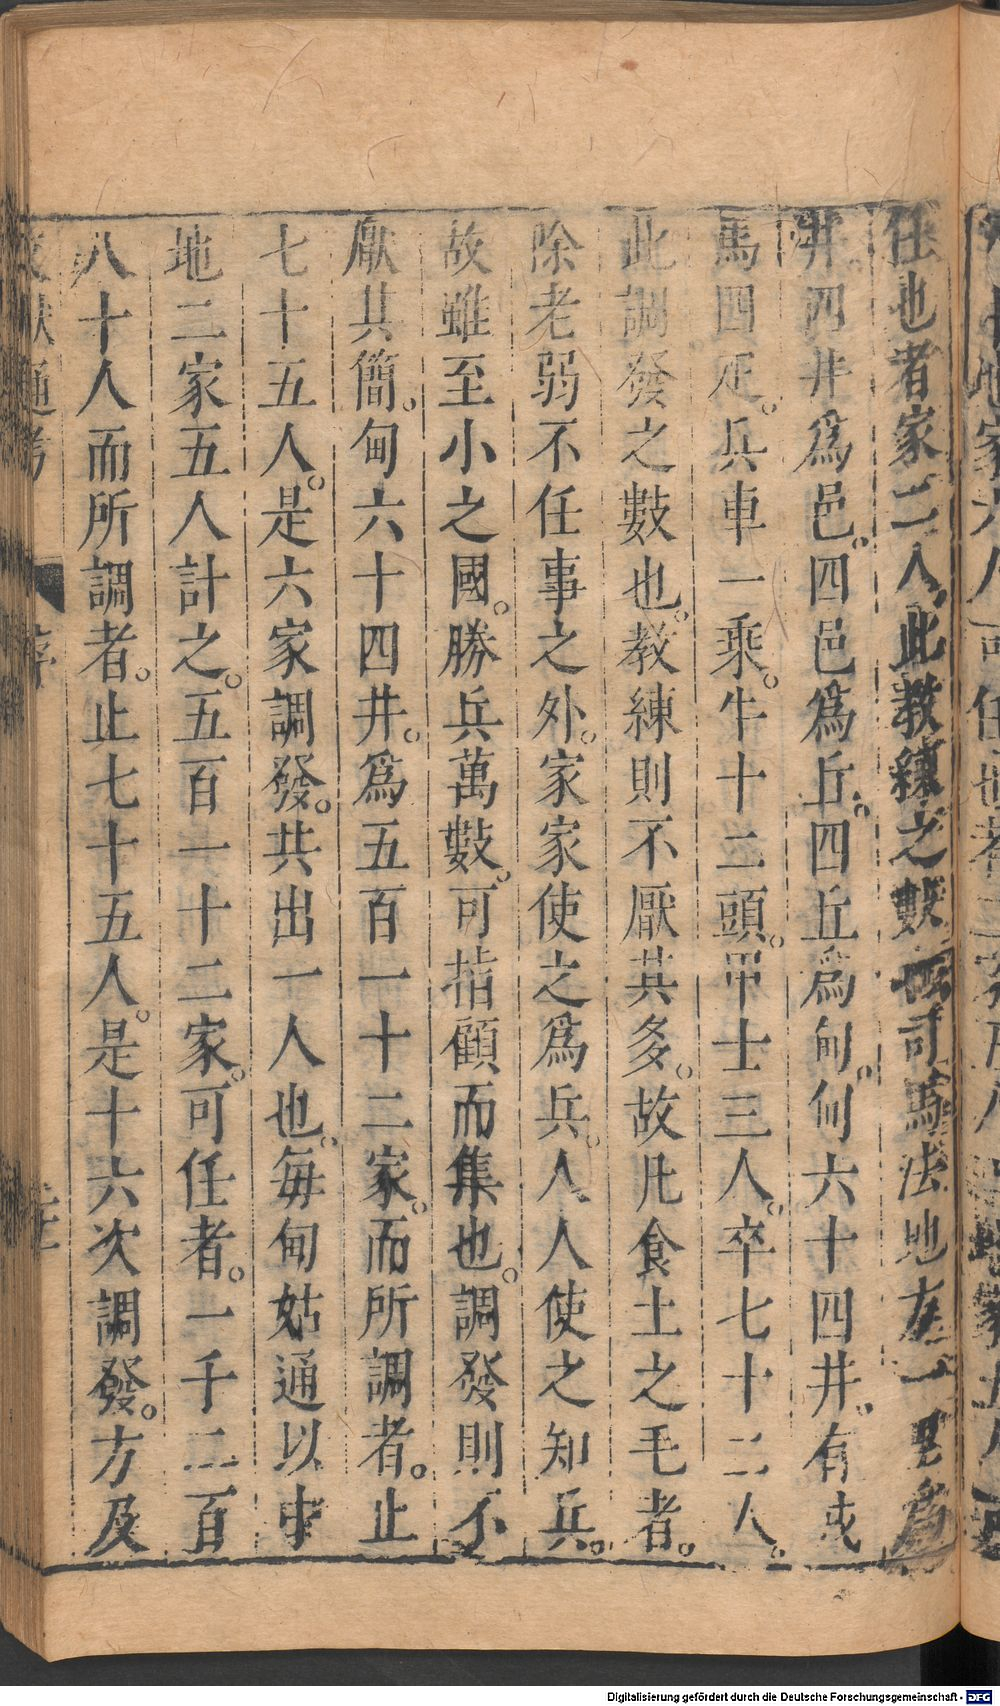 任也者家二人此教練之數也司馬法地方一里爲
井四井爲邑四邑爲丘四丘爲甸甸六十四井有戎
馬四疋兵車一乘牛十二頭甲士三人卒七十二人
此調發之數也教練則不厭其多故凡食土之毛者
除老弱不任事之外家家使之爲兵人人使之知兵
故雖至小之國勝兵萬數可指顧而集也調發則不
厭其簡甸六十四井爲五百一十二家而所調者止
七十五人是六家調發共出一人也每甸姑通以中
地二家五人計之五百一十二家可任者一千二百
八十人而所調者止七十五人是十六次調發方及
文獻通考 序
Digitalisierung gefördert durch die Deutsche Forschungsgemeinschaft - DFG